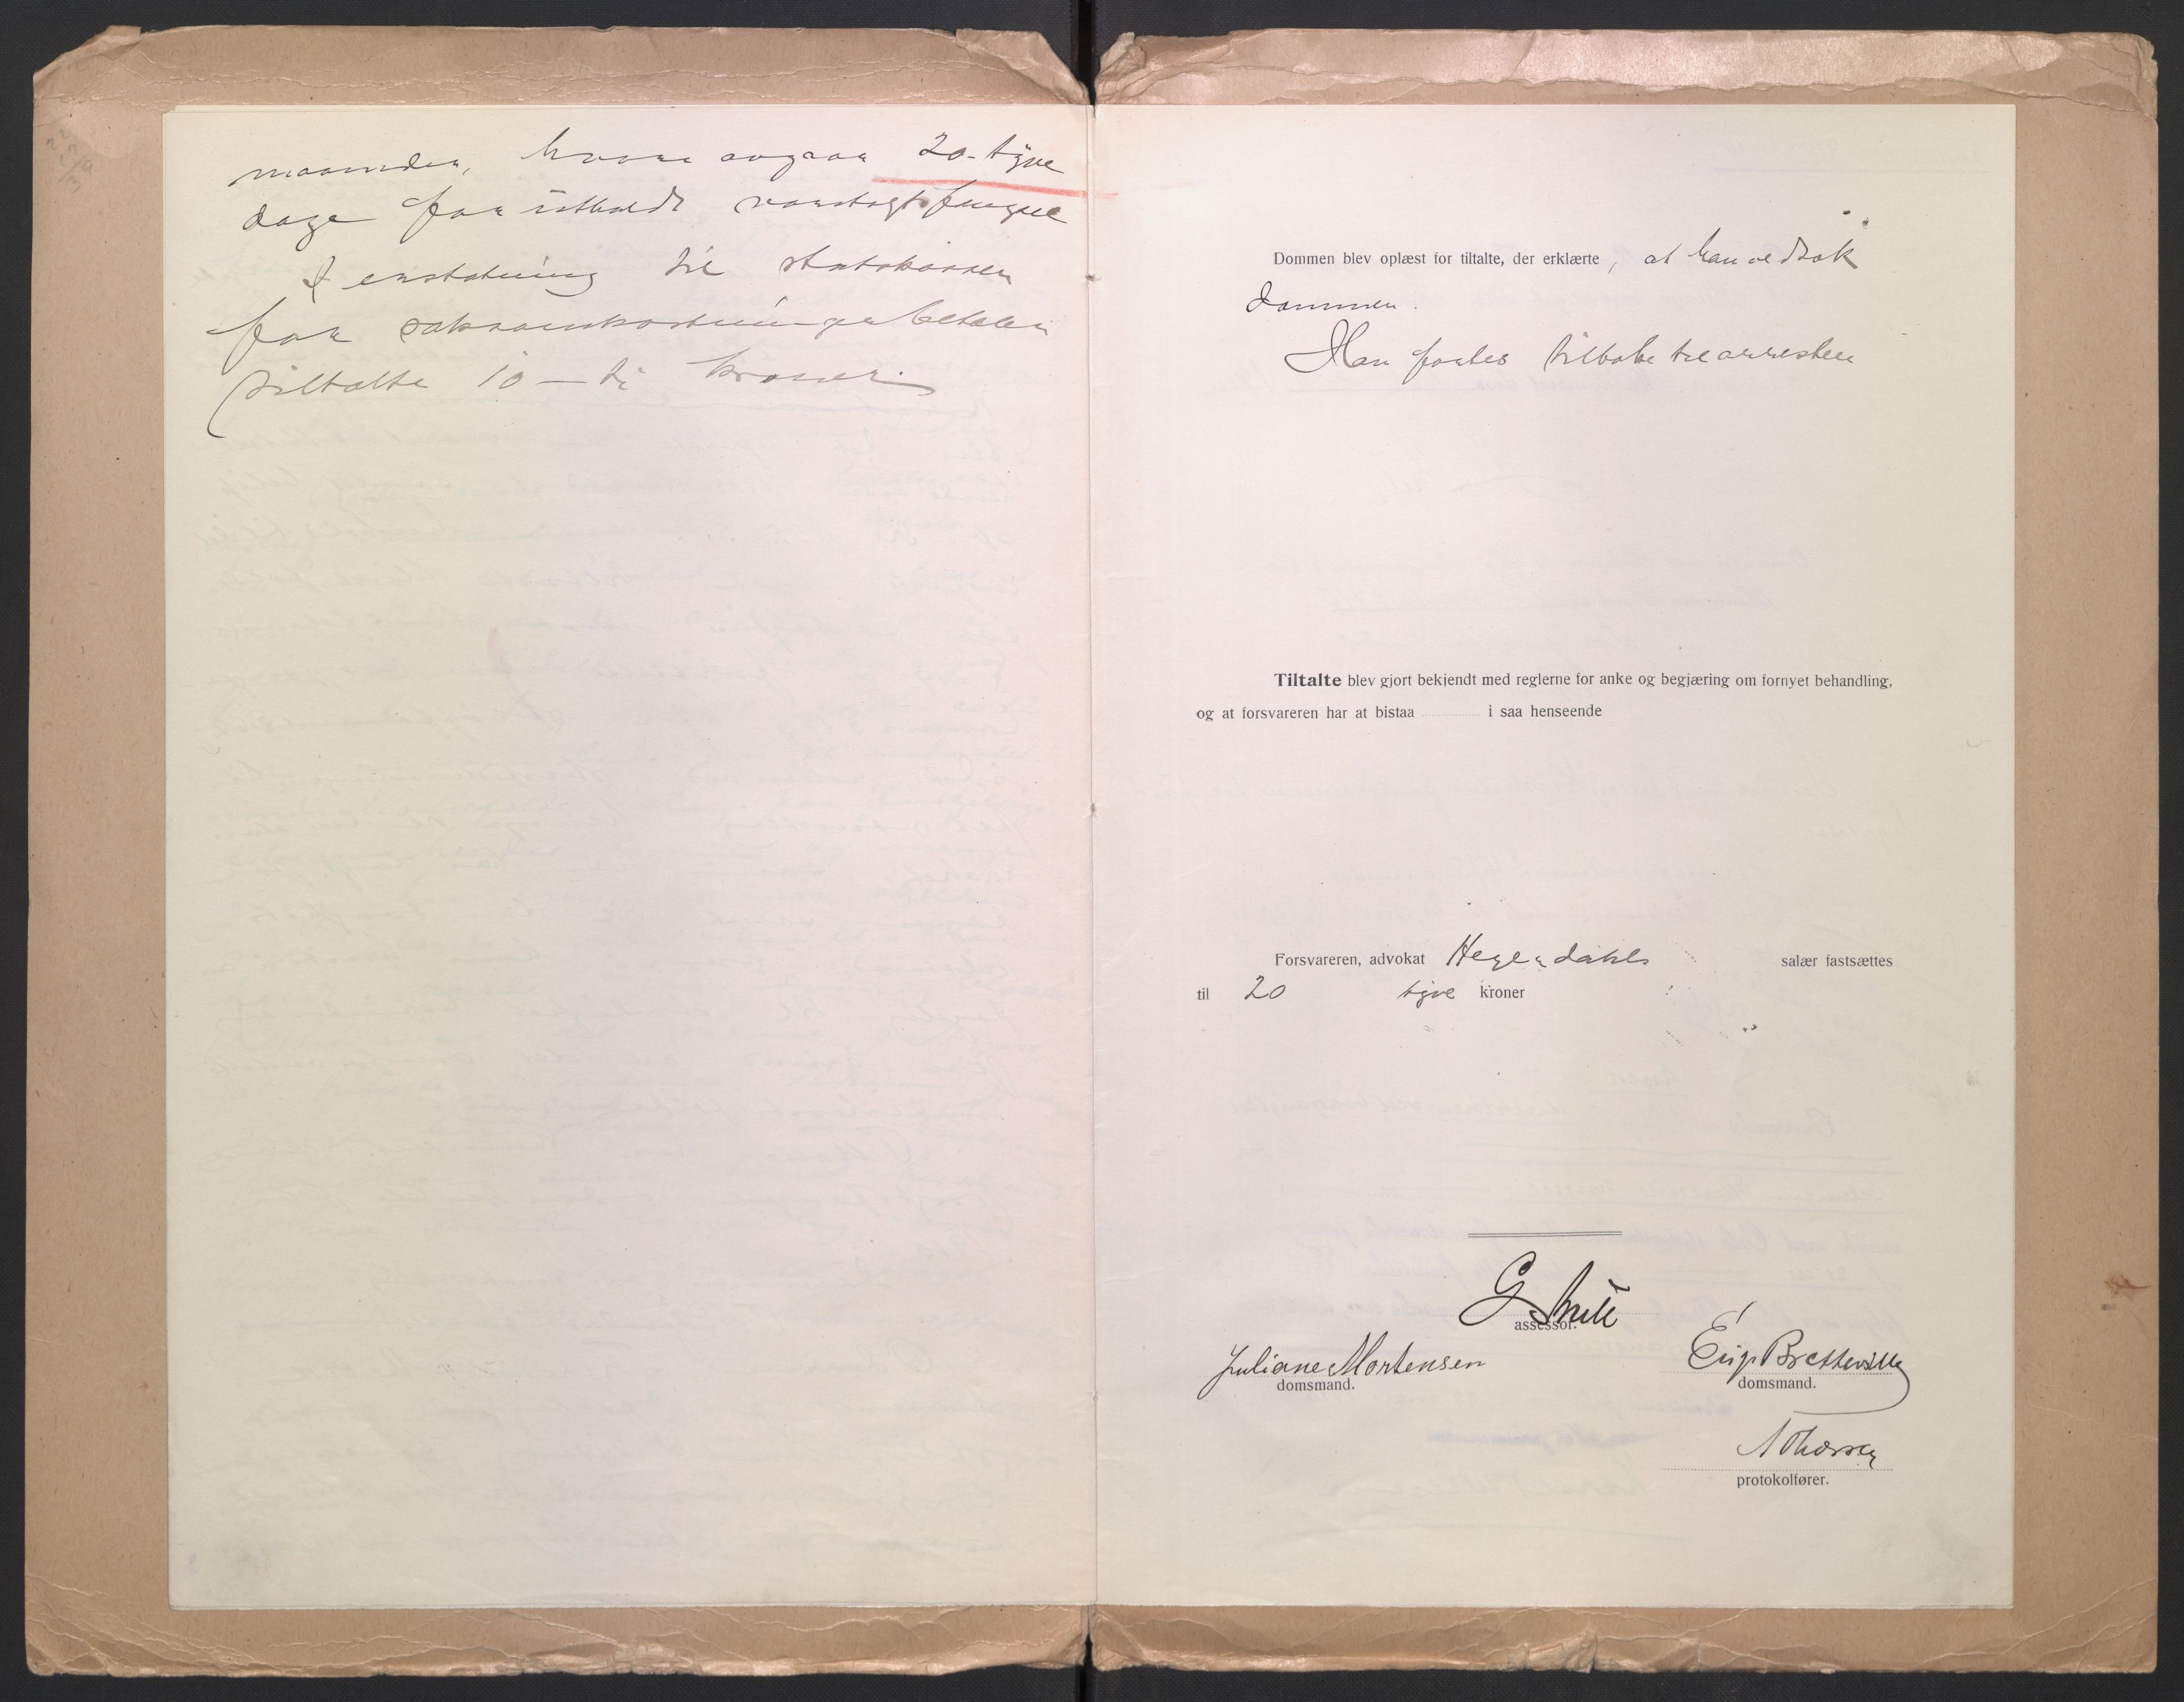 maaneder, hvorav avgaar 20 - tyve
dage for utholdt varetægtsfængsel
I erstatning til statskassen
for saksomkostninger betaler
tiltalte 10 — ti kroner.
Dommen blev oplæst for tiltalte, der erklærte, at han vedtok
dommen.
Hanførtes tilbake til arresten
Tiltalte blev gjort bekjendt med reglerne for anke og begjæring om fornyet behandling,
og at forsvareren har at bistaa i saa henseende
Forsvareren, advokat Heyerdahls salær fastsættes
til 20 tyve kroner
G. Smith
assessor.
Juliane Mortensen
domsmand.
Bretteville
domsmand.
protokolfører.